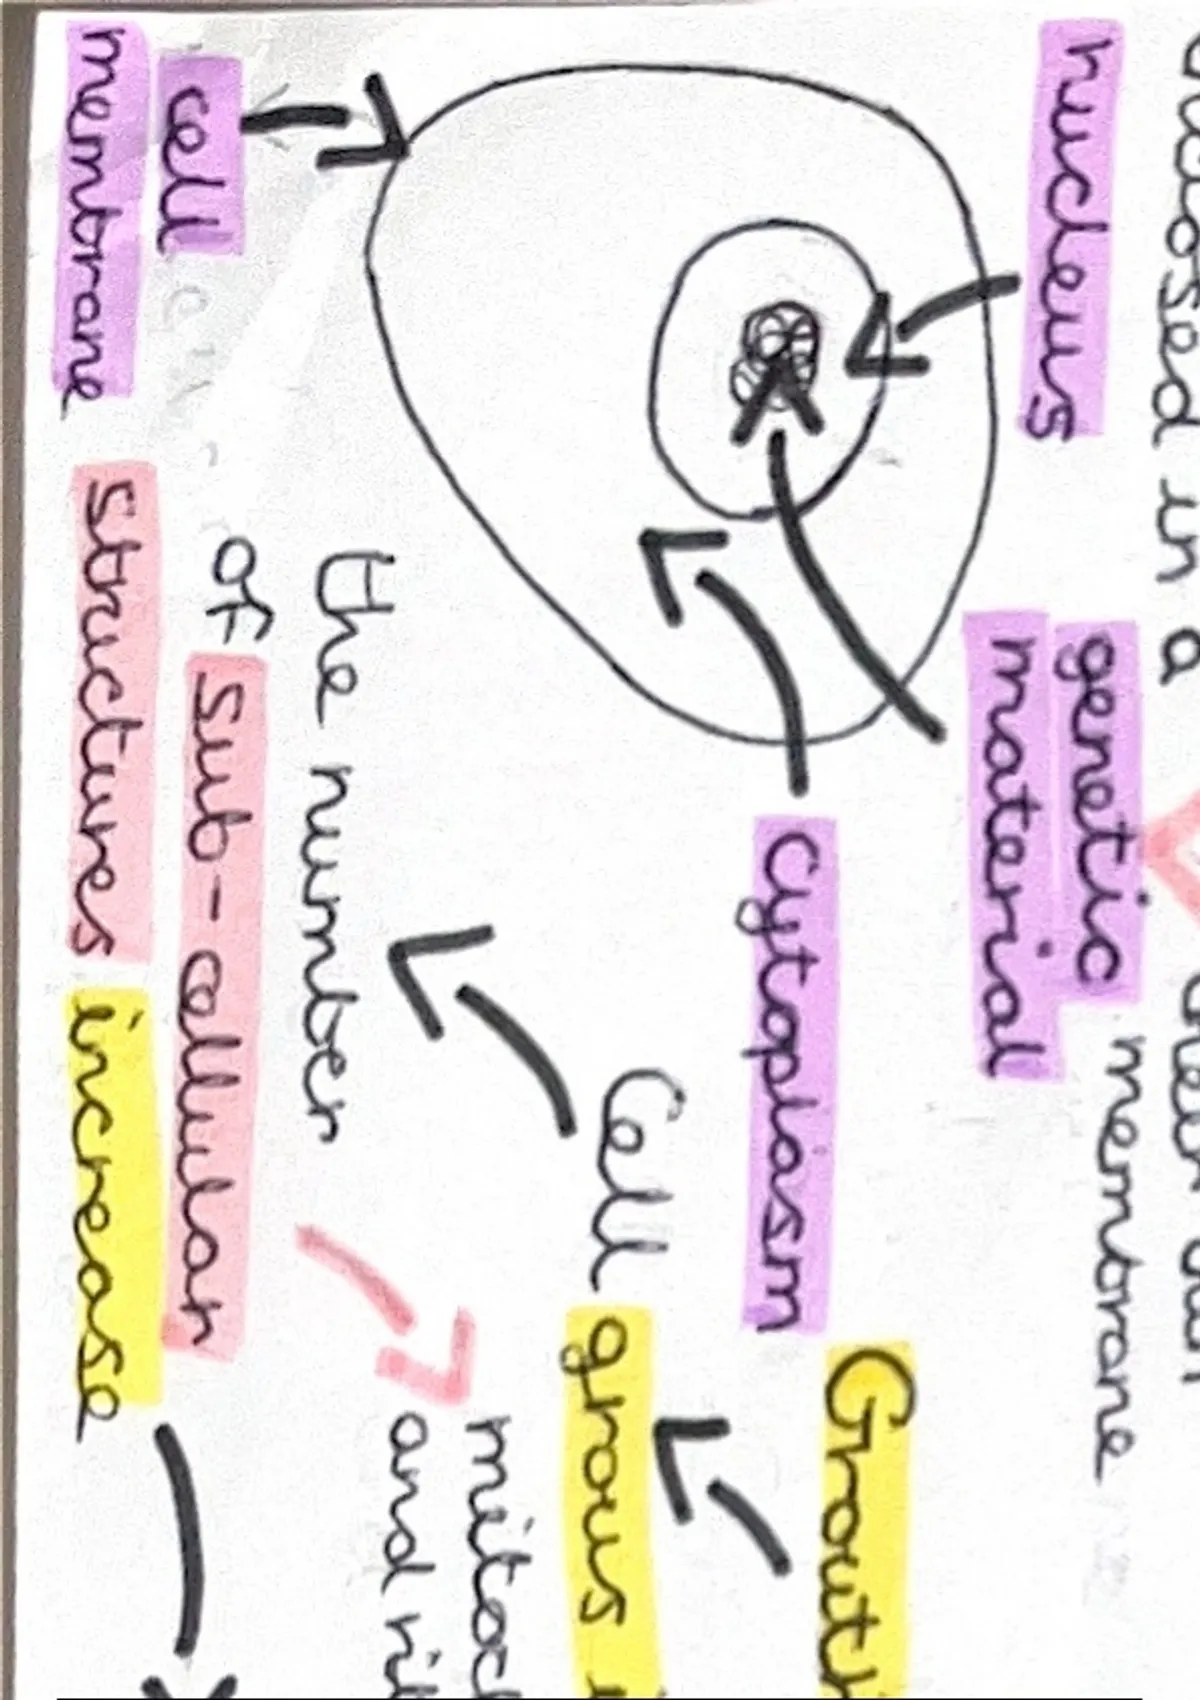 enclosed in a
membrane
nucleus
genetic
material
cytoplasm
cell
membrane
Growth
Cell grows
the number
of sub-cellular
structures increase
and